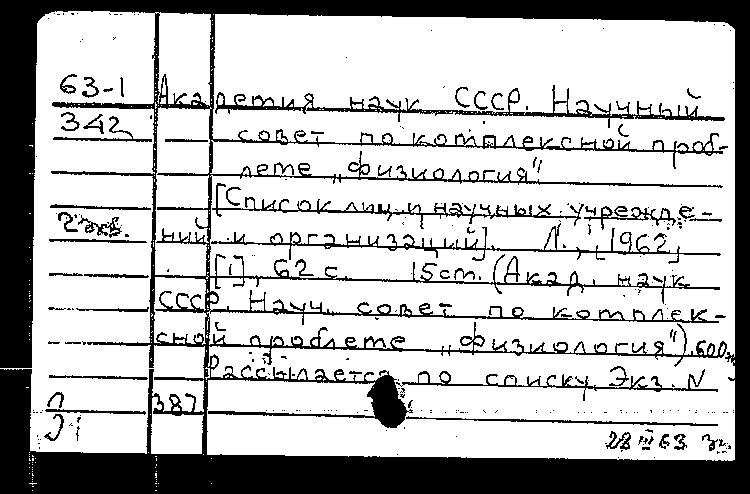 63-1 Академия наук СССР. Научный
342 совет по комплексной проб-
леме „физиология"
[Список лиц и научных учрежде-
2 экз. ний и организаций]. Л., [1962]
[1], 62 с. 15см. (Акад. наук
СССР. Науч. совет по комплек-
сной проблеме „физиология"). 600 экз
Рассылается по списку. Экз. N
387
28 III 63